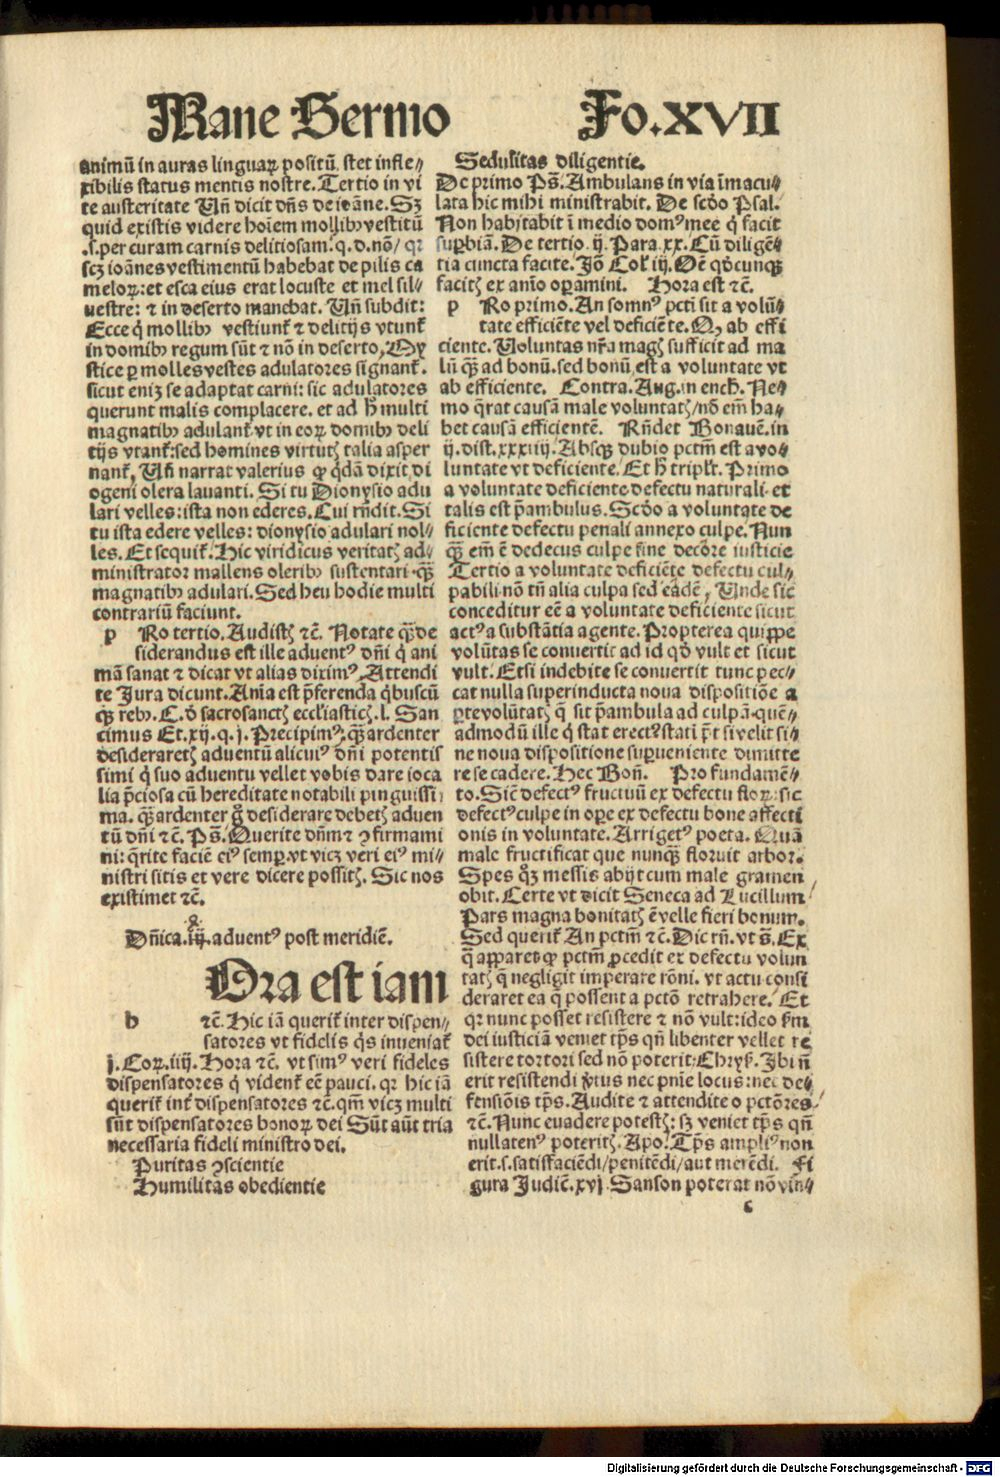 Mane Sermo Fo.XVII
animū in auras linguaꝝ positū. stet infle⸗
xibilis status mentis nostre. Tertio in vi
te austeritate Uñ dicit dñs de ioāne. Sꝫ
quid existis videre hoīem mollibꝰ vestitū
.s. per curam carnis delitiosam. q. d. nō/ qꝛ
scꝫ ioānes vestimentū habebat de pilis ca
meloꝝ: et esca eius erat locuste et mel sil⸗
uestre: ⁊ in deserto manebat. Uñ subdit:
Ecce q̇ mollibꝰ vestiunt̃ ⁊ delitijs vtunt̃
in domibꝰ regum sūt ⁊ nō in deserto, My
stice ꝑ molles vestes adulatores signant̃.
sicut eniꝫ se adaptat carni: sic adulatores
querunt malis complacere. et ad h̄ multi
magnatibꝰ adulant̃ vt in eoꝝ domibꝰ deli
tijs vtant̃: sed homines virtutꝭ talia asper
nant̃, Uñ narrat valerius ꝙ q̇dā dixit di
ogeni olera lauanti. Si tu Dionysio adu
lari velles: ista non ederes. Cui rñdit. Si
tu ista edere velles: dionysio adulari nol⸗
les. Et sequit̃. Hic viridicus veritatꝭ ad⸗
ministrator mallens oleribꝰ sustentari ꝙ̃
magnatibꝰ adulari. Sed heu hodie multi
contrariū faciunt.
p Ro tertio. Audistꝭ ⁊c̃. Notate ꝙ̃ de
siderandus est ille aduentꝰ dñi q̇ ani
mā sanat ⁊ dicat vt alias diximꝰ, Attendi
te Jura dicunt. Aīa est p̄ferenda q̇buscū
qꝫ rebꝰ. C. ð sacrosanctꝭ eccliasticꝭ. l. San
cimus Et. xij. q. j. Precipimꝰ, ꝙ̃ ardenter
desideraretꝭ aduentū alicuiꝰ dñi potentis
simi q̇ suo aduentu vellet vobis dare ioca
lia p̄ciosa cū hereditate notabili pinguissi
ma. ꝙ̃ ardenter g̊ desiderare debetꝭ aduen
tū dñi ⁊c̃. Ps̄. Querite dñm ⁊ ꝯfirmami
ni: q̄rite faciē eiꝰ semꝑ. vt vicꝫ veri eiꝰ mi⸗
nistri sitis et vere dicere possitꝭ. Sic nos
existimet ⁊c̃.
Dñica. iij. aduentꝰ post meridiē.
Ora est iam
h ⁊c̃. Hic iā querit̃ inter dispen⸗
satores vt fidelis q̇s inueniat̃
j. Coꝝ. iiij. Hora ⁊c̃. vt simꝰ veri fideles
dispensatores q̇ vident̃ eē pauci. qꝛ hic iā
querit̃ int̃ dispensatores ⁊c̃. qm̄ vicꝫ multi
sūt dispensatores bonoꝝ dei Sūt aūt tria
necessaria fideli ministro dei.
Puritas ꝯscientie
Humilitas obedientie
Sedulitas diligentie.
De primo Ps̄. Ambulans in via īmacu⸗
lata hic mihi ministrabit. De scðo Psal.
Non habitabit ī medio domꝰ mee q̇ facit
suꝑbiā. De tertio. ij. Para. xx. Cū diligē⸗
tia cuncta facite. Jō Col̃ iij. Oē qðcunqꝫ
facitꝭ ex aīo oꝑamini. Hora est ⁊c̃.
p Ro primo. An somnꝰ pcti sit a volū⸗
tate efficiēte vel deficiēte. Qꝫ ab effi
ciente. Voluntas nr̄a magꝭ sufficit ad ma
lū ꝙ̃ ad bonū. sed bonū est a voluntate vt
ab efficiente. Contra. Aug. in ench̃. Ne⸗
mo q̄rat causā male voluntatꝭ/ nō em̄ ha⸗
bet causā efficientē. Rñdet Bonauē. in
ij. dist. xxxiiij. Absqꝫ dubio pctm̄ est a vo⸗
luntate vt deficiente. Et h̄ triplr̃. Primo
a voluntate deficiente defectu naturali. et
talis est p̄ambulus. Scðo a voluntate de
ficiente defectu penali annexo culpe. Nun
qꝫ em̄ ē dedecus culpe sine decore iusticie
Tertio a voluntate deficiēte defectu cul⸗
pabili nō tñ alia culpa sed eādē, Unde sic
conceditur eē a voluntate deficiente sicut
actꝰ a substātia agente. Propterea quippe
volūtas se conuertit ad id qð vult et sicut
vult. Etsi indebite se conuertit tunc pec⸗
cat nulla superinducta noua dispositiōe a
ꝑte volūtatꝭ q̄ sit p̄ambula ad culpā. quē⸗
admodū ille q̇ stat erectꝰ stati p̄t si velit si⸗
ne noua dispositione suꝑueniente dimitte
re se cadere. Hec Boñ. Pro fundamē⸗
to. Sic̄ defectꝰ fructuū ex defectu floꝝ: sic
defectꝰ culpe in oꝑe ex defectu bone affecti
onis in voluntate. Arrigetꝰ poeta. Quā
male fructificat que nunqꝫ floruit arbor.
Spes qꝫ messis abijt cum male gramen
obit. Certe vt dicit Seneca ad Lucillum
Pars magna bonitatꝭ ē velle fieri bonum.
Sed querit̃ An pctm̄ ⁊c̃. Dic rñ. vt s̄. Ex
q̄ apparet ꝙ pctm̄ ꝓcedit ex defectu volun
tatꝭ q̄ negligit imperare rōni. vt actu consi
deraret ea q̄ possent a pctō retrahere. Et
qꝛ nunc posset resistere ⁊ nō vult: ideo s̃m
dei iusticiā veniet tp̄s qñ libenter vellet re
sistere tortori sed nō poterit. Chrys̃. Jbi ñ
erit resistendi vtius nec pnie locus: nec de⸗
fensiōis tp̄s. Audite ⁊ attendite o pctōres
⁊c̃. Nunc euadere potestꝭ: sꝫ veniet tp̄s qñ
nullatenꝰ poteritꝭ. Apo. Tp̄s ampliꝰ non
erit. s. satisfaciēdi/ penitēdi/ aut merēdi. Fi
gura Judic̄. xvj. Sanson poterat nō vin⸗
c
Digitalisierung gefördert durch die Deutsche Forschungsgemeinschaft - DFG